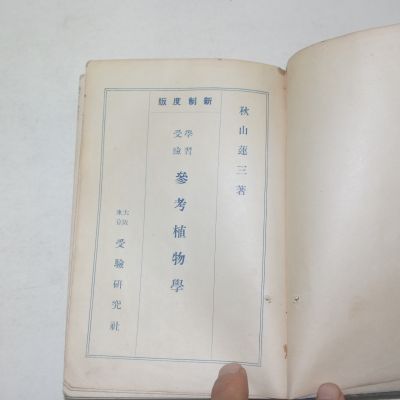 新制度版
秋山蓮三著
學習
受驗
參考植物學
大阪
東京
受驗研究社